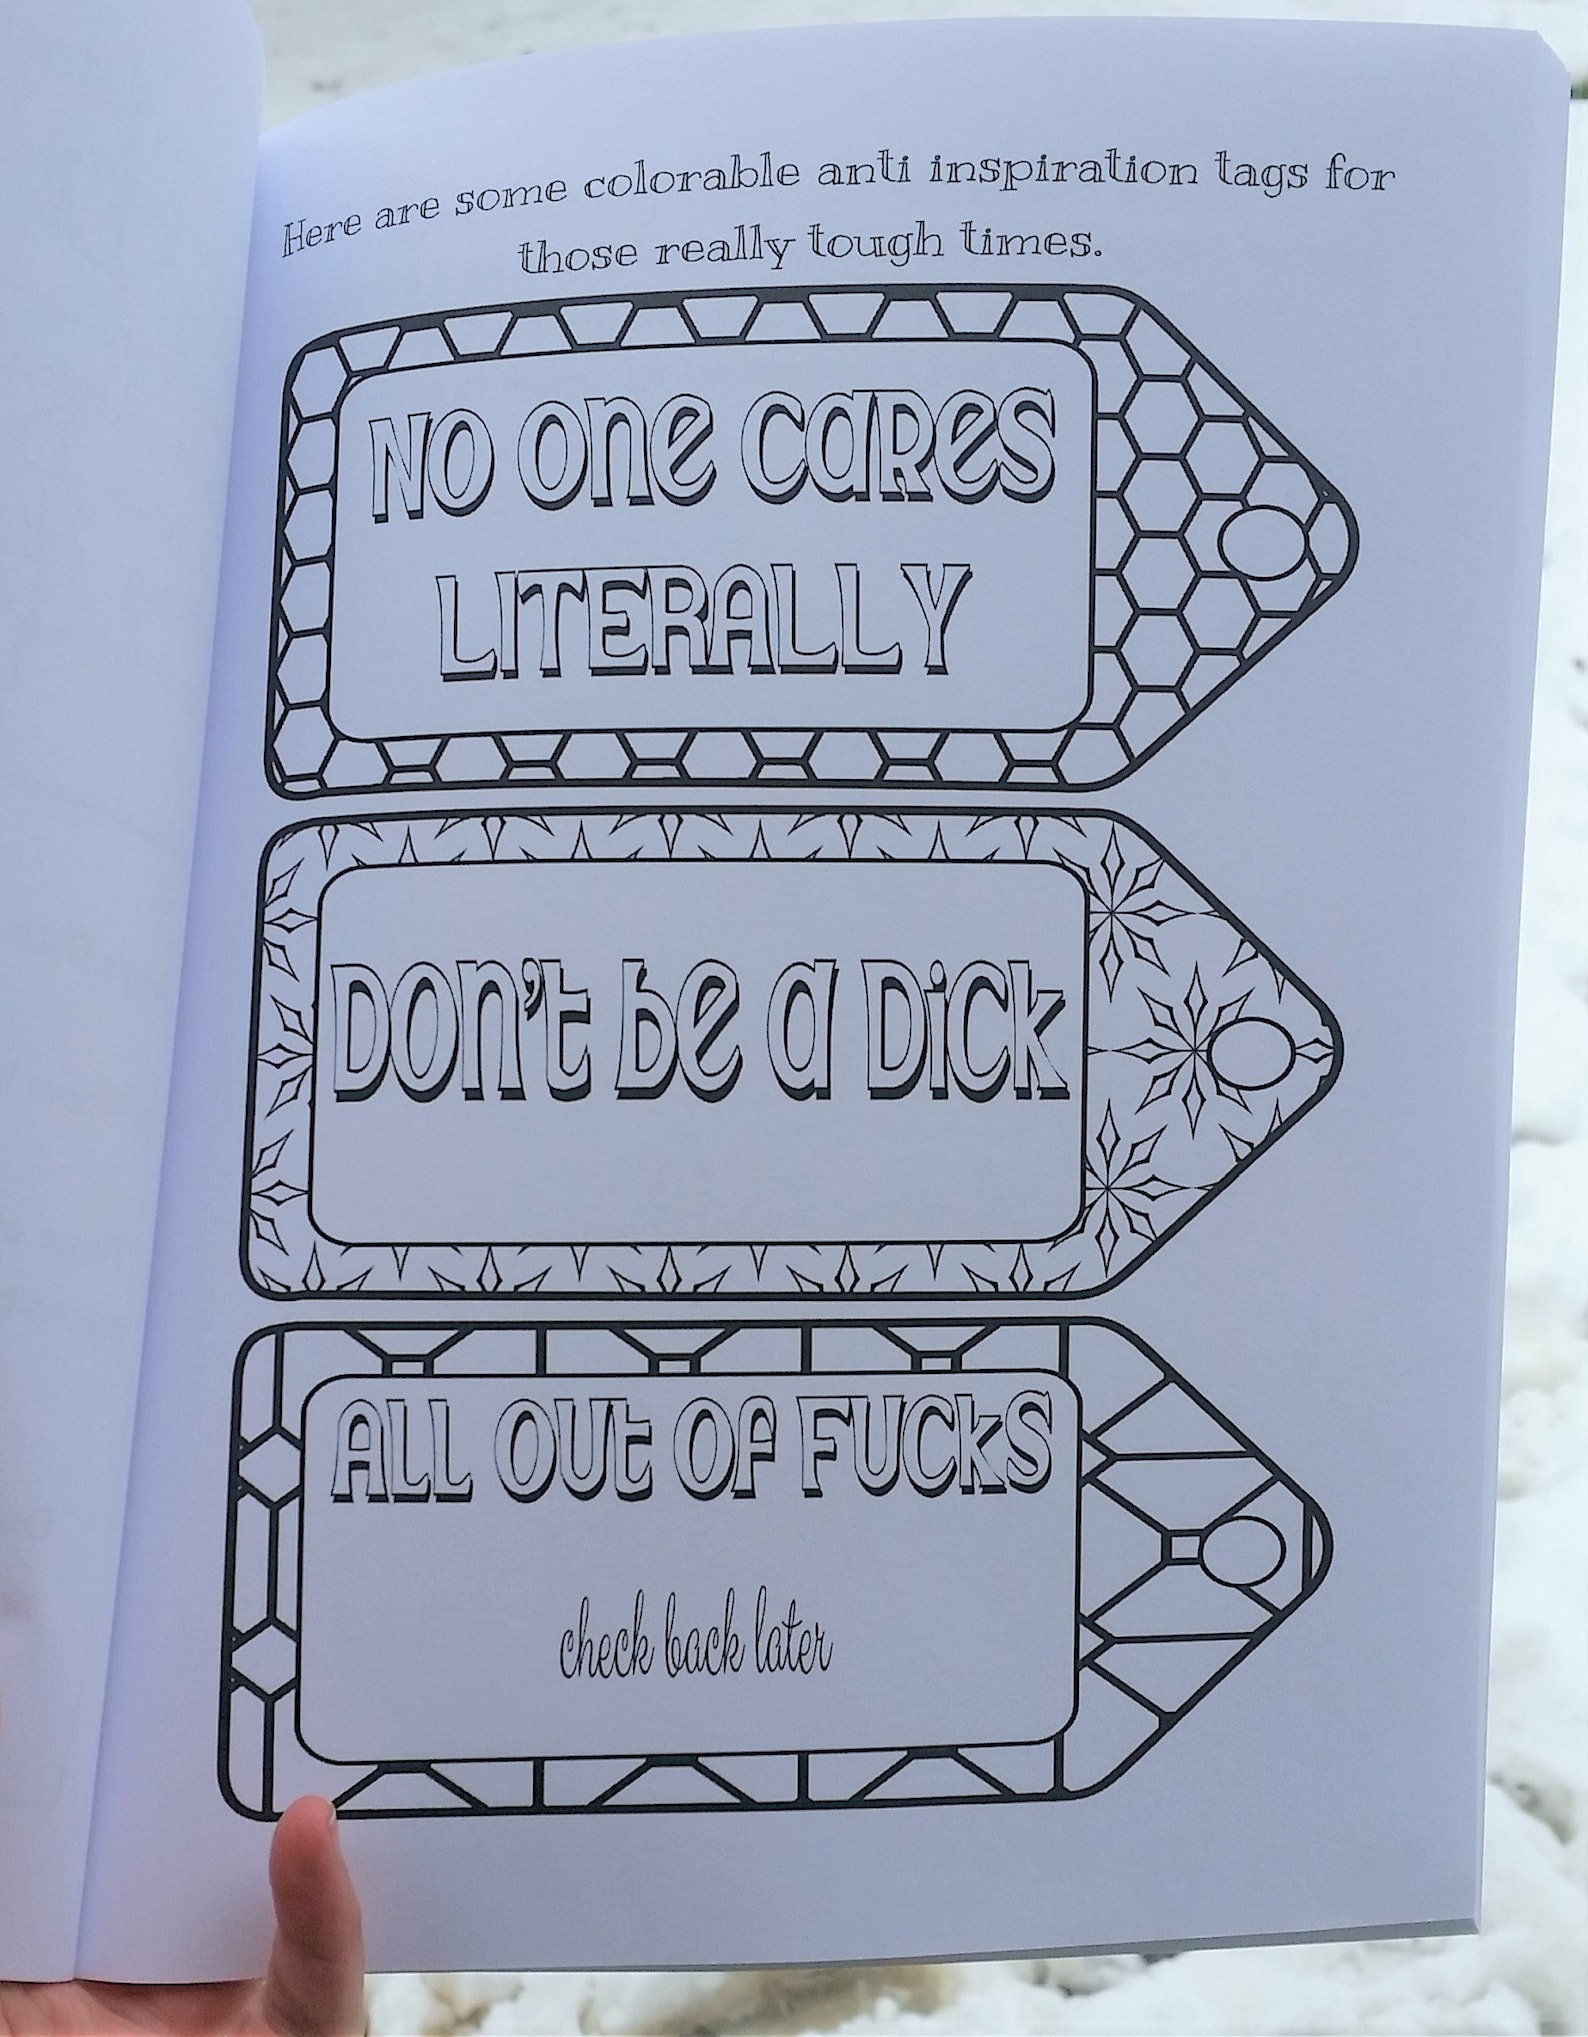 Here are some colorable anti inspiration tags for
those really tough times.
No one cares
LITERALLY
Don't be a Dick
ALL OUt OF FUCKS
check back later